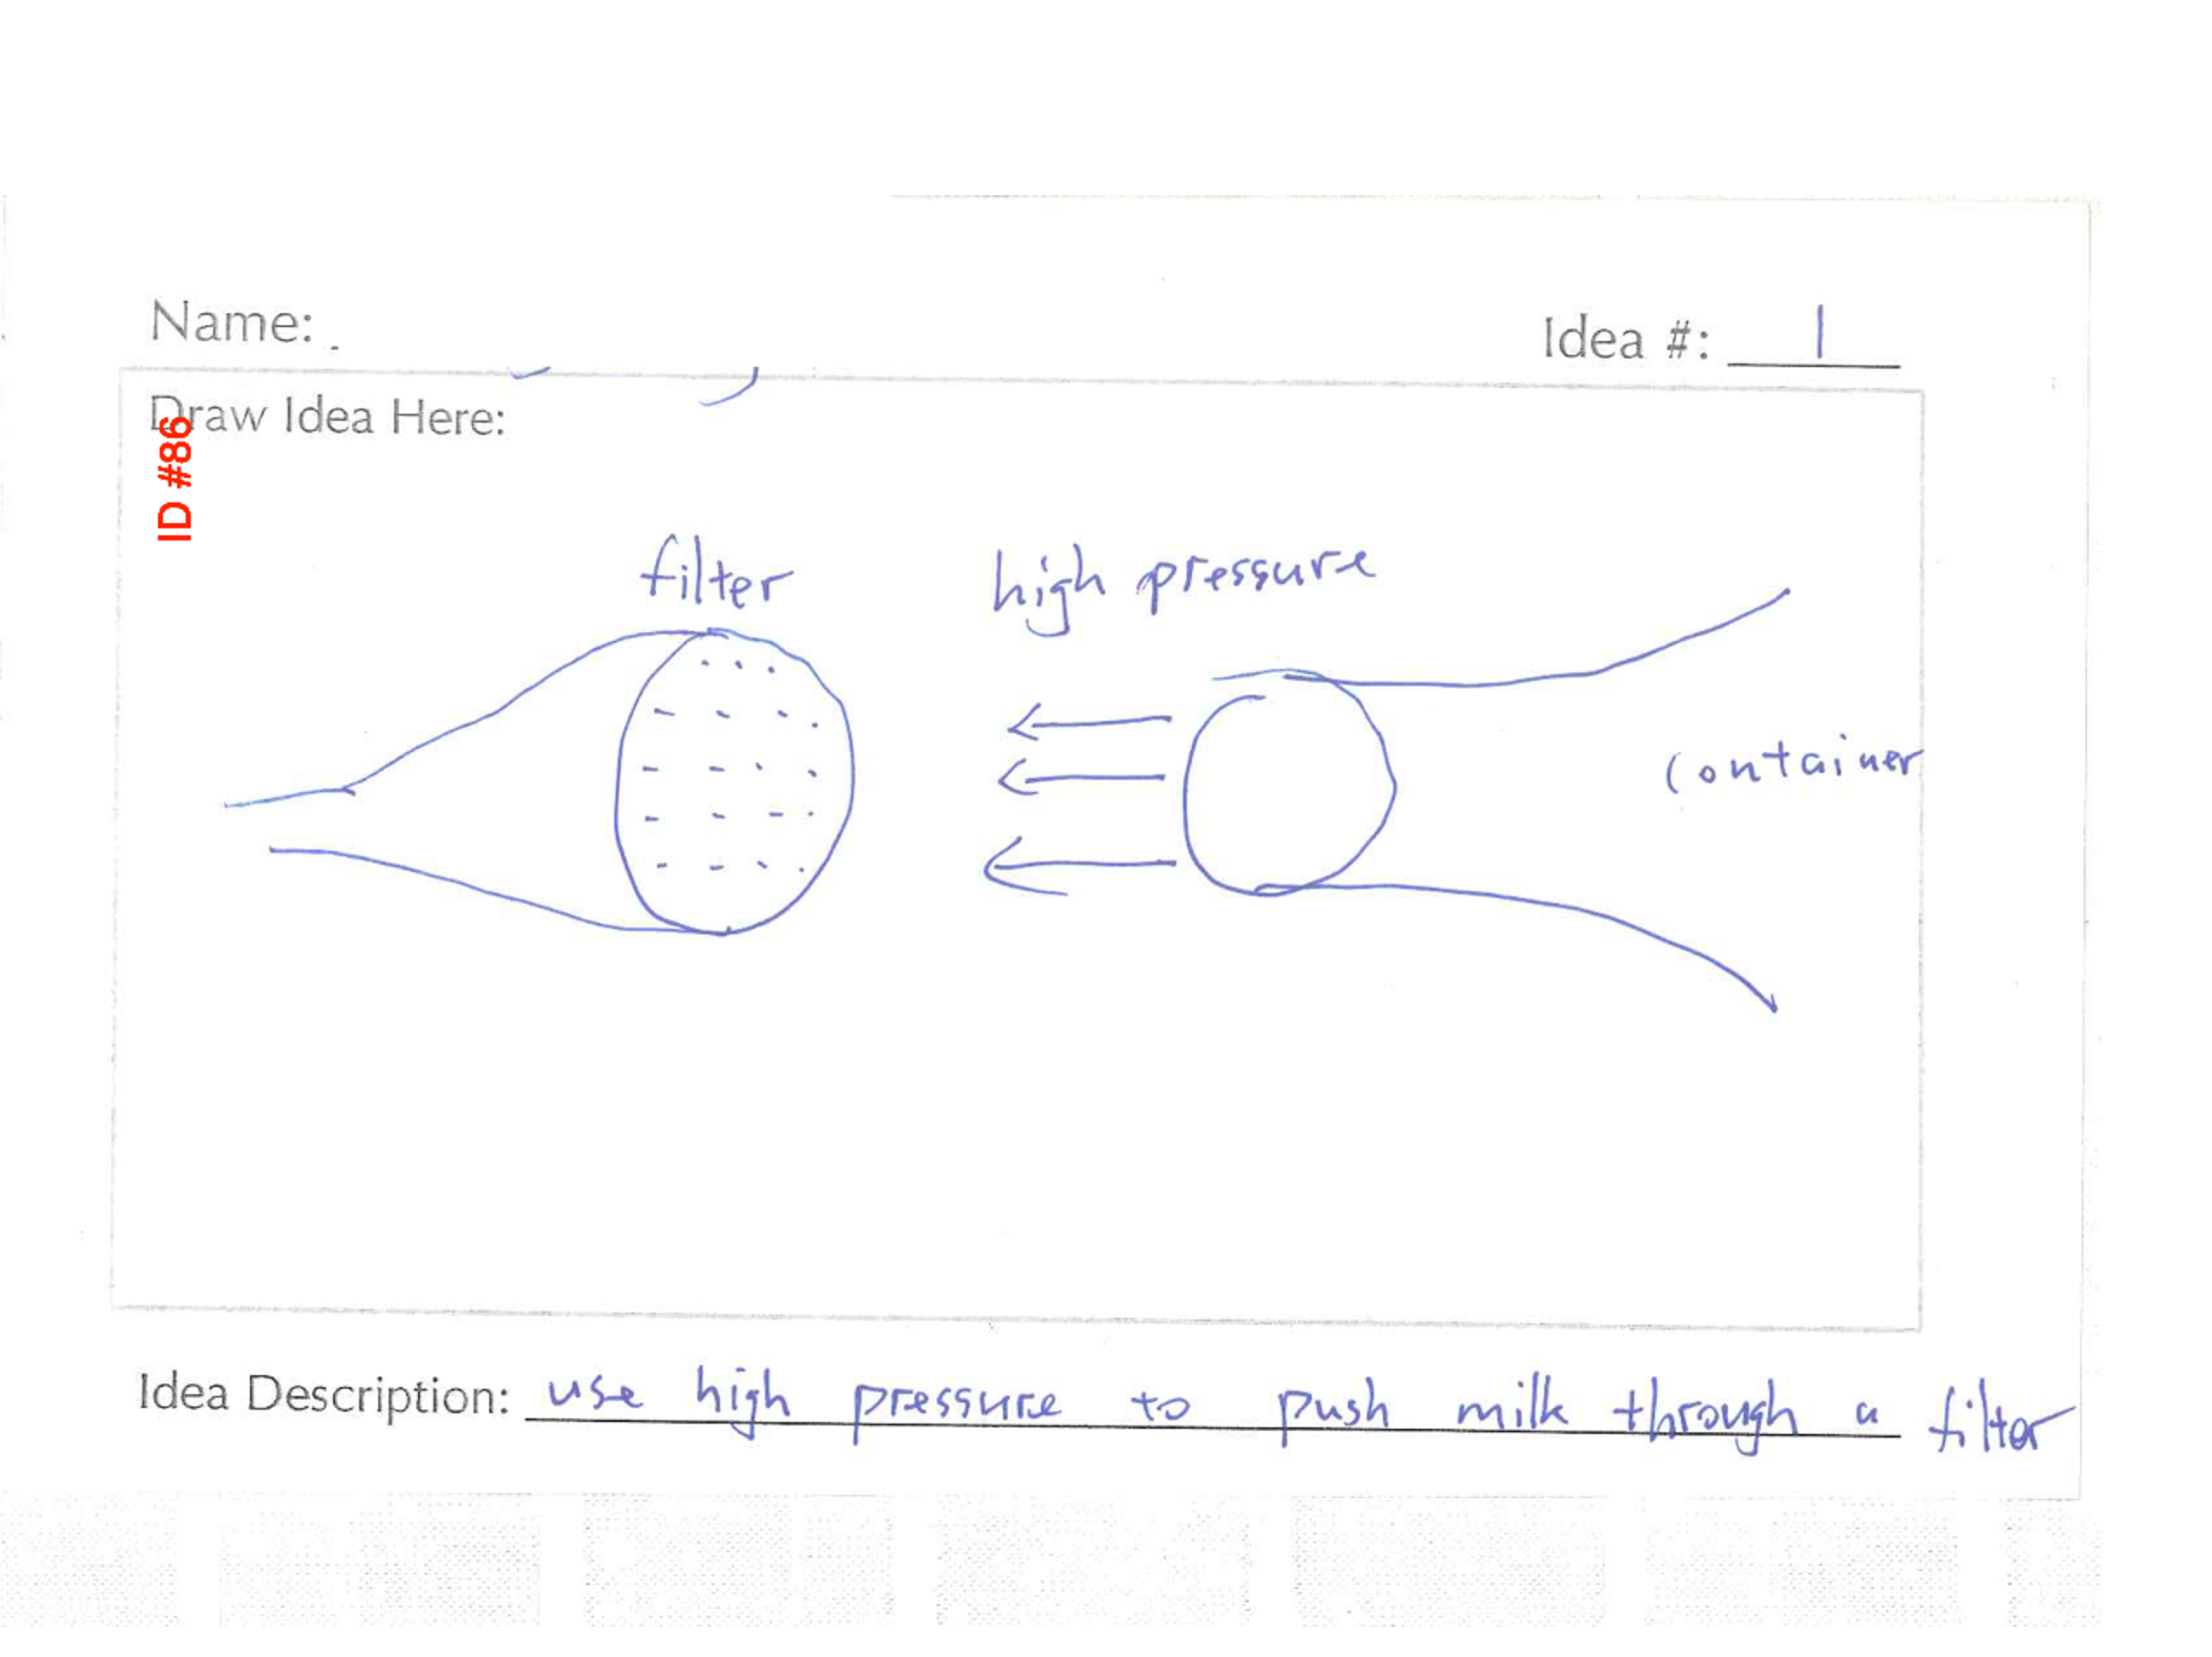 Name:
Idea #: 1
Draw Idea Here:
ID #86
filter
high pressure
container
Idea Description: use high pressure to push milk through a filter